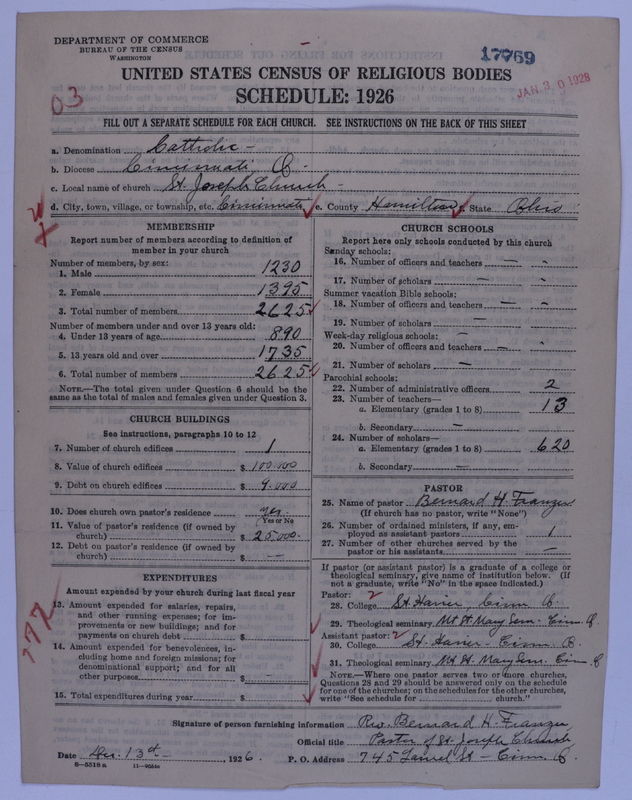 DEPARTMENT OF COMMERCE
BUREAU OF THE CENSUS
WASHINGTON
17769
JAN 30 1928
03
UNITED STATES CENSUS OF RELIGIOUS BODIES
SCHEDULE: 1926
FILL OUT A SEPARATE SCHEDULE FOR EACH CHURCH. SEE INSTRUCTIONS ON THE BACK OF THIS SHEET
a. Denomination Catholic -
b. Diocese Cincinnati O. -
c. Local name of church St. Joseph Church -
d. City, town, village, or township, etc. Cincinnati e. County Hamilton f. State Ohio
MEMBERSHIP
Report number of members according to definition of
member in your church
Number of members, by sex:
1. Male 1230
2. Female 1395
3. Total number of members 2625
Number of members under and over 13 years old:
4. Under 13 years of age 890
5. 13 years old and over 1735
6. Total number of members 2625
NOTE.—The total given under Question 6 should be the
same as the total of males and females given under Question 3.
CHURCH BUILDINGS
See instructions, paragraphs 10 to 12
7. Number of church edifices 1
8. Value of church edifices $ 100.000
9. Debt on church edifices $ 9.000
10. Does church own pastor's residence yes.
(Yes or No)
11. Value of pastor's residence (if owned by
church) $ 25000.
12. Debt on pastor's residence (if owned by
church) $ —
EXPENDITURES
Amount expended by your church during last fiscal year
13. Amount expended for salaries, repairs,
and other running expenses; for im-
provements or new buildings; and for
payments on church debt $
14. Amount expended for benevolences, in-
cluding home and foreign missions; for
denominational support; and for all
other purposes $ —
15. Total expenditures during year $
777
CHURCH SCHOOLS
Report here only schools conducted by this church
Sunday schools:
16. Number of officers and teachers — -
17. Number of scholars — -
Summer vacation Bible schools:
18. Number of officers and teachers — -
19. Number of scholars —
Week-day religious schools: —
20. Number of officers and teachers — -
21. Number of scholars —
Parochial schools:
22. Number of administrative officers 2
23. Number of teachers—
a. Elementary (grades 1 to 8) 13
b. Secondary —
24. Number of scholars—
a. Elementary (grades 1 to 8) 620
b. Secondary —
PASTOR
25. Name of pastor Bernard H. Franzer
(If church has no pastor, write "None")
26. Number of ordained ministers, if any, em-
ployed as assistant pastors 1
27. Number of other churches served by the
pastor or his assistants —
If pastor (or assistant pastor) is a graduate of a college or
theological seminary, give name of institution below. (If
not a graduate, write "No" in the space indicated.)
Pastor: 2
28. College St. Xavier, Cinn O.
29. Theological seminary Mt St. Mary Sem. Cinn. O.
Assistant pastor: 2
30. College St. Xavier - Cinn. O.
31. Theological seminary Mt St. Mary Sem. Cinn O
NOTE.—Where one pastor serves two or more churches,
Questions 28 and 29 should be answered only on the schedule
for one of the churches; on the schedules for the other churches,
write "See schedule for church."
Signature of person furnishing information Rev. Bernard H. Franzer
Official title Pastor of St. Joseph Church
Date Dec. 13th - , 1926. P. O. Address 745 Laurel St - Cinn. O.
8—5318a 11—9051a